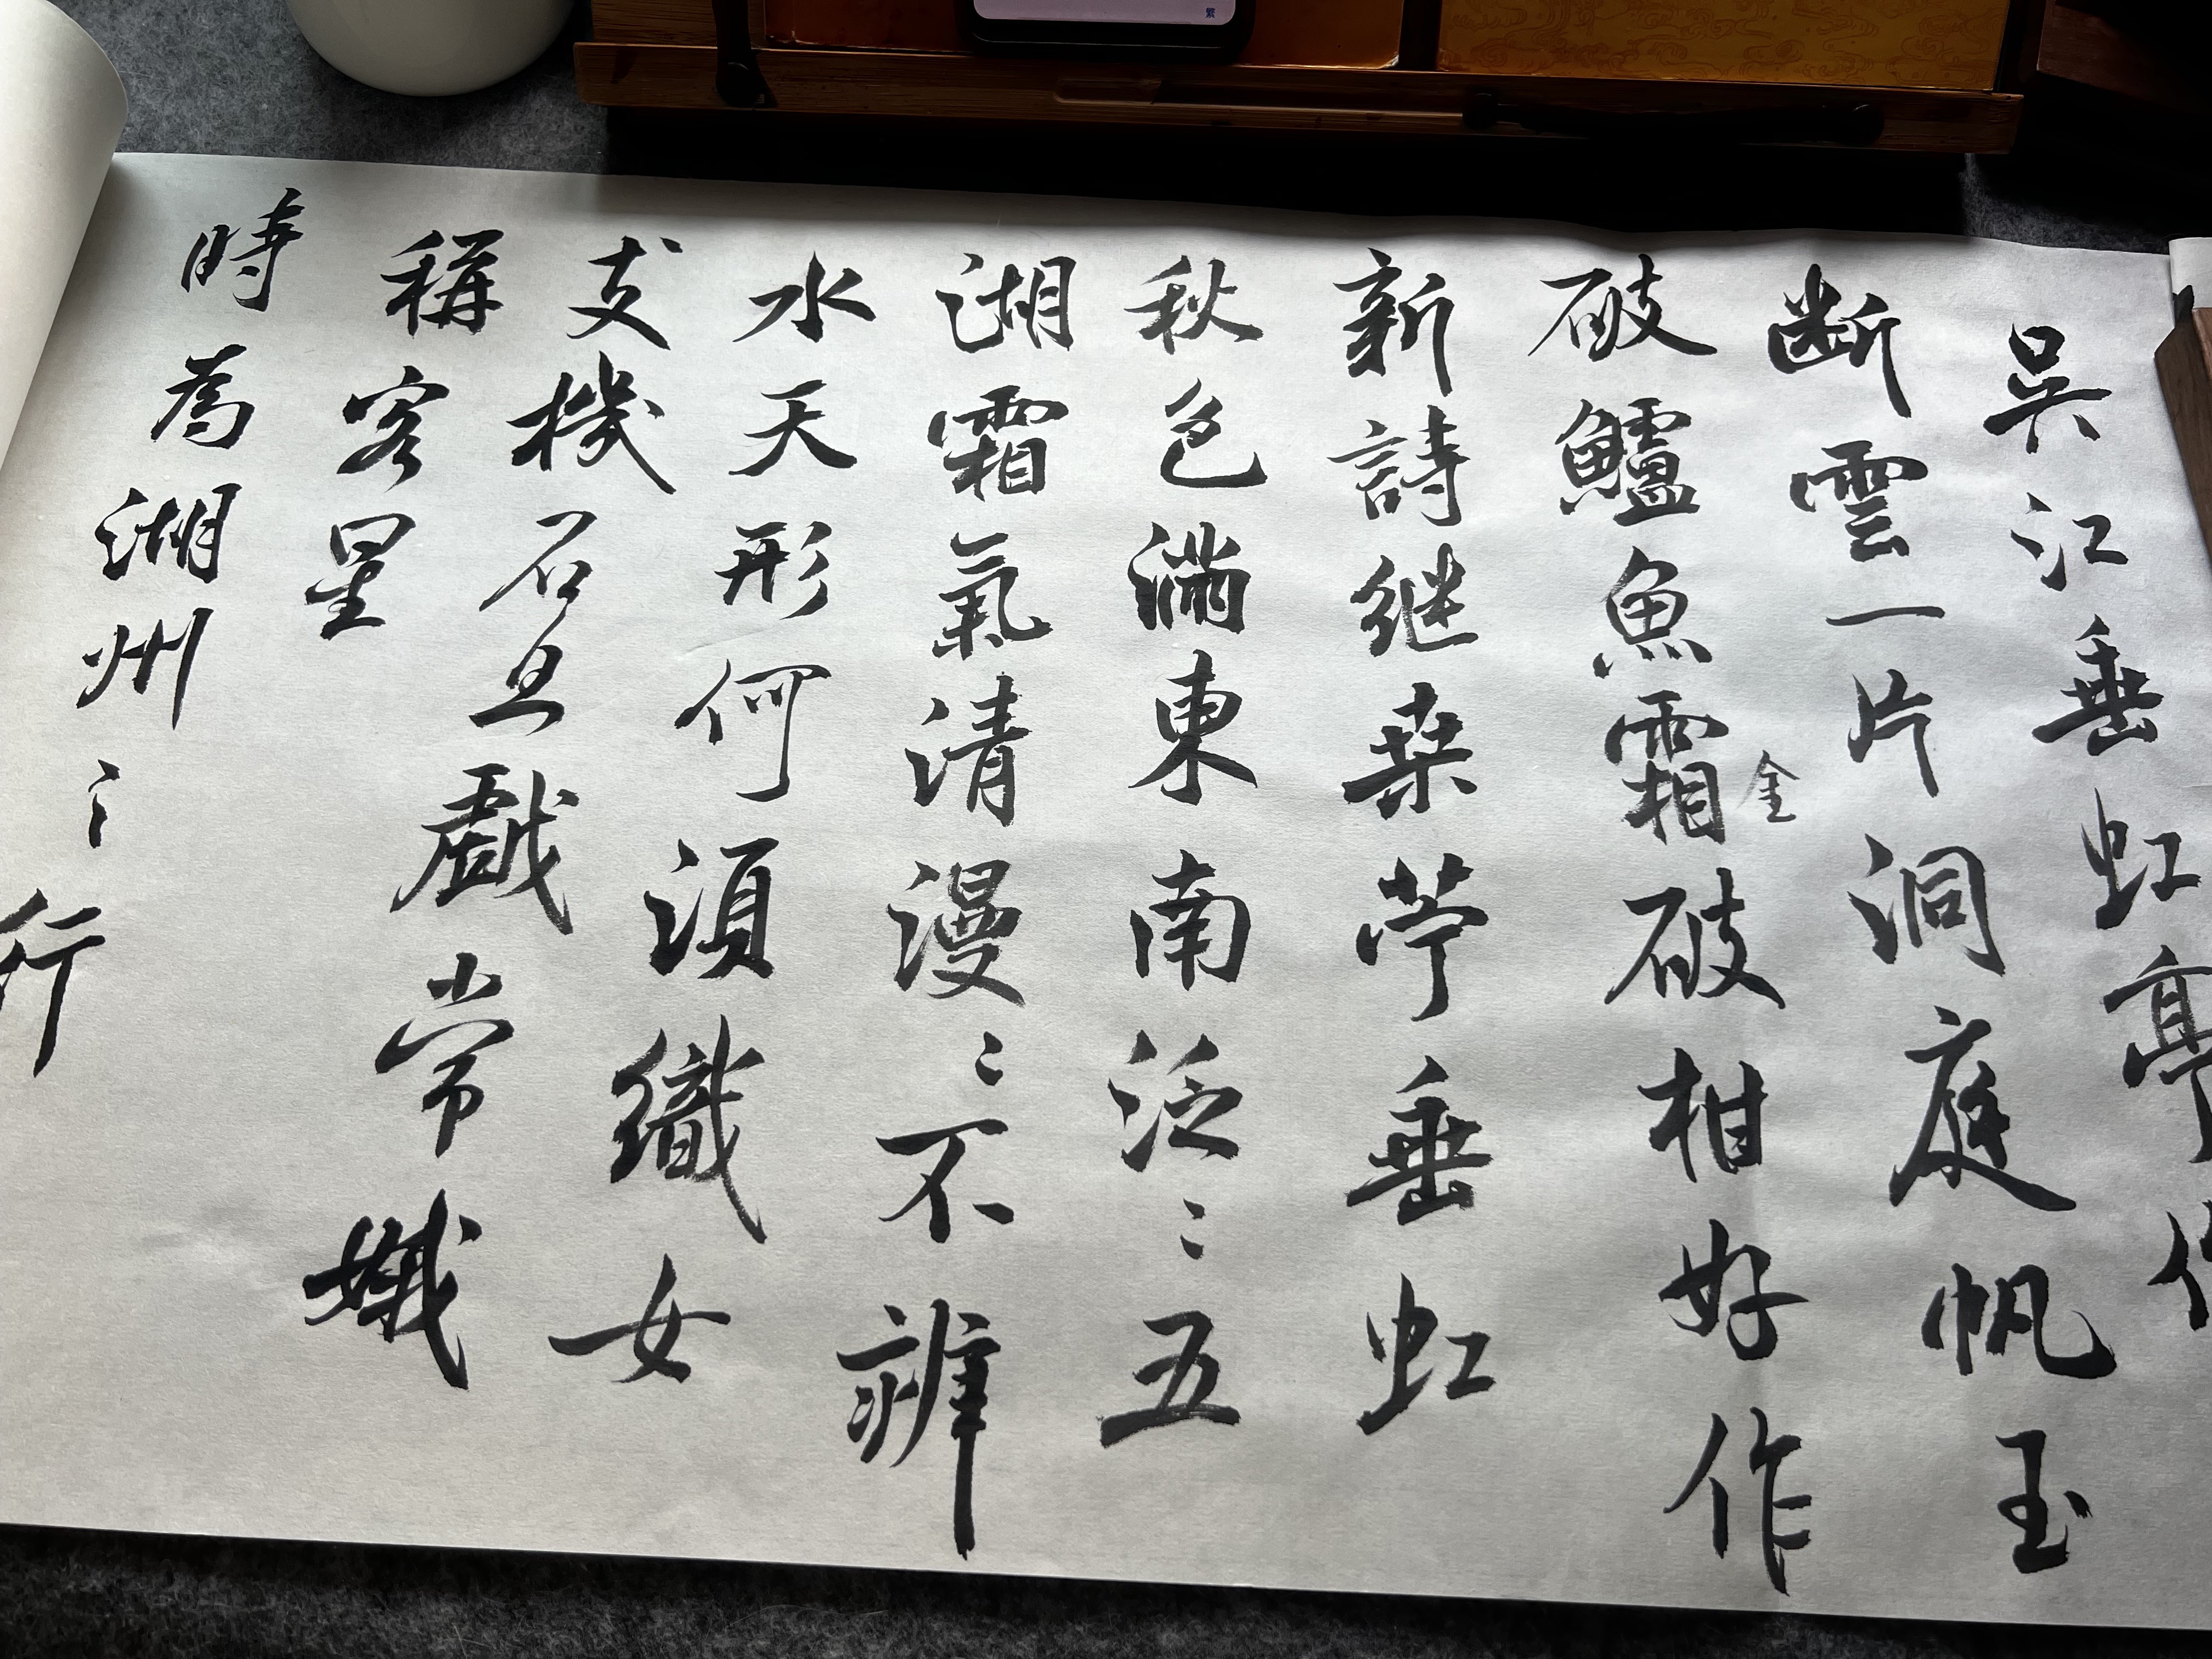 吳江垂虹亭作
断雲一片洞庭帆玉
破鱸魚霜破柑好作
金
新詩継桑苧垂虹
秋色満東南泛〻五
湖霜氣清漫〻不辨
水天形何須織女
支機石且戲常娥
稱客星
時為湖州之行
繁